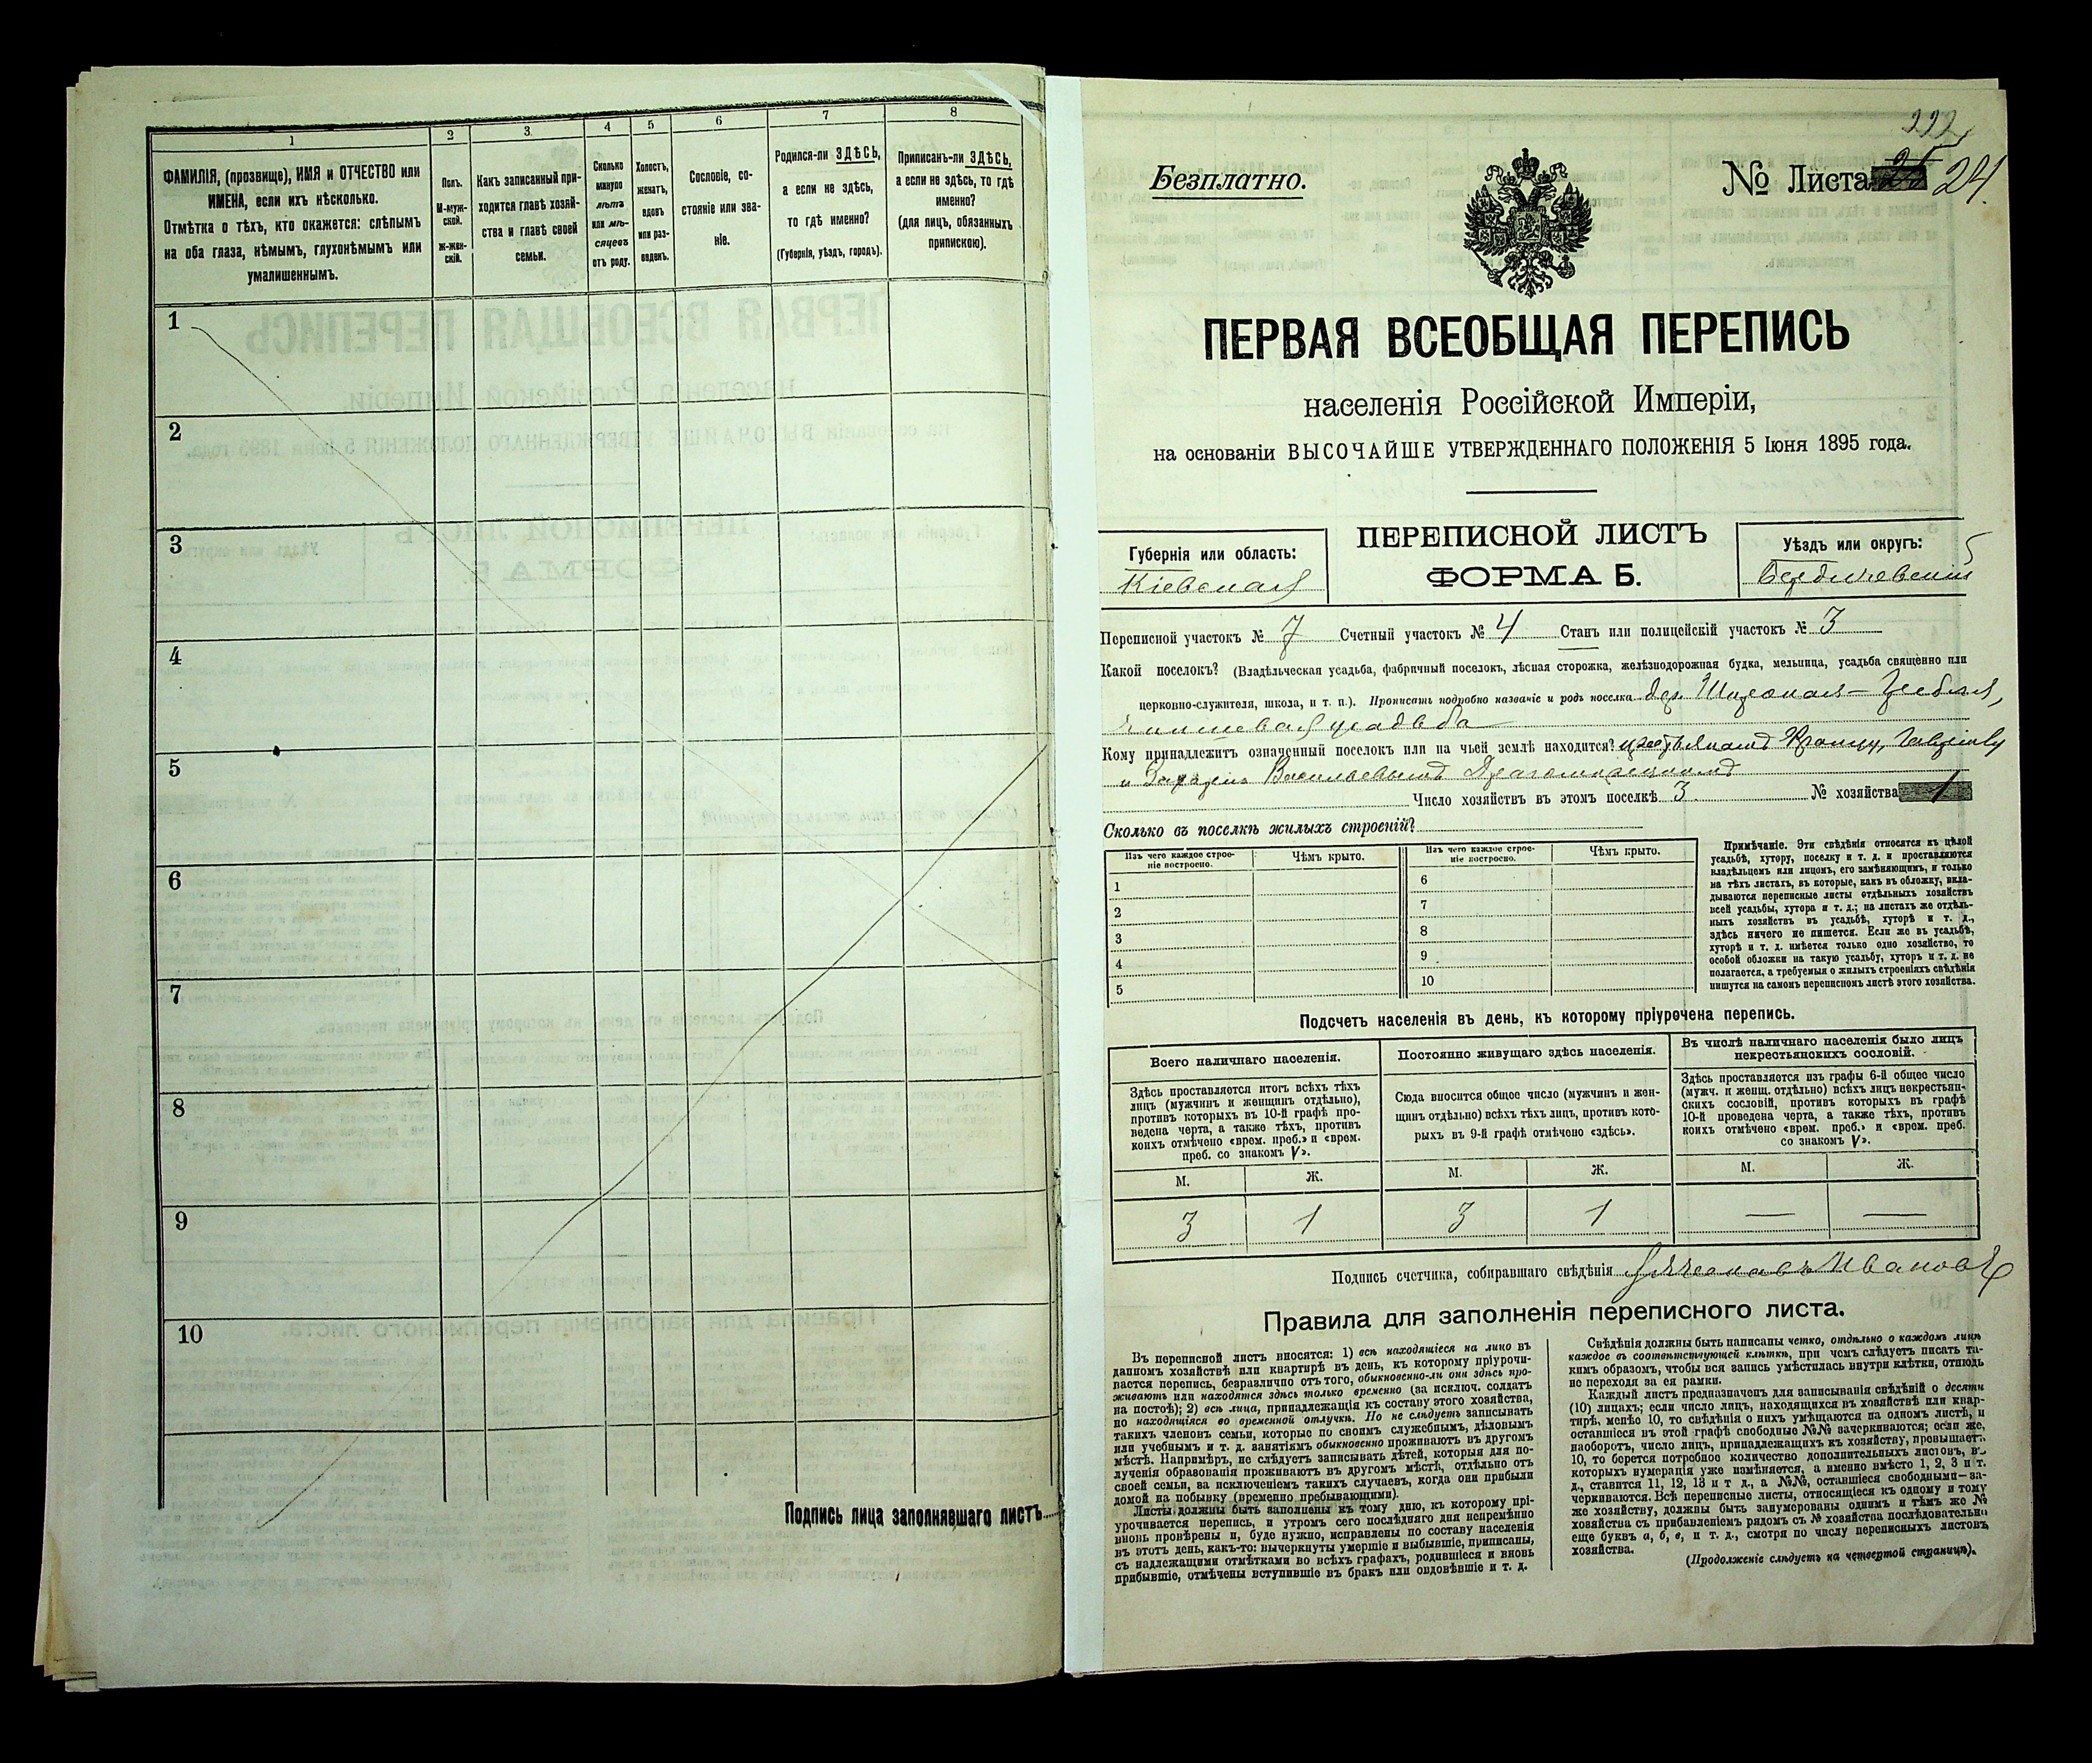 1
ФАМИЛІЯ, (прозвище), ИМЯ и ОТЧЕСТВО или
ИМЕНА, если ихъ нѣсколько.
Отмѣтка о тѣхъ, кто окажется: слѣпымъ
на оба глаза, нѣмымъ, глухонѣмымъ или
умалишеннымъ.
2
Полъ.
М-муж-
ской.
ж-жен-
скій.
3
Какъ записанный при-
ходится главѣ хозяй-
ства и главѣ своей
семьи.
4
Сколько
минуло
лѣтъ
или мѣ-
сяцевъ
отъ роду.
5
Холостъ,
женатъ,
вдовъ
или раз-
веденъ.
6
Сословіе, со-
стояніе или зва-
ніе.
7
Родился-ли ЗДѢСЬ,
а если не здѣсь,
то гдѣ именно?
(Губернія, уѣздъ, городъ).
8
Приписанъ-ли ЗДѢСЬ,
а если не здѣсь, то гдѣ
именно?
(для лицъ, обязанныхъ
припискою).
1
2
3
4
5
6
7
8
9
10
Подпись лица заполнявшаго листъ
222
Безплатно.
№ Листа 25 24.
ПЕРВАЯ ВСЕОБЩАЯ ПЕРЕПИСЬ
населенія Россійской Имперіи,
на основаніи ВЫСОЧАЙШЕ УТВЕРЖДЕННАГО ПОЛОЖЕНІЯ 5 Іюня 1895 года.
Губернія или область:
Кіевская
ПЕРЕПИСНОЙ ЛИСТЪ
ФОРМА Б.
Уѣздъ или округъ:
Бердичевскій
5
Переписной участокъ № 7 Счетный участокъ № 4 Станъ или полицейскій участокъ № 3
Какой поселокъ? (Владѣльческая усадьба, фабричный поселокъ, лѣсная сторожка, желѣзнодорожная будка, мельница, усадьба священно или
церковно-служителя, школа, и т. п.). Прописать подробно названіе и родъ поселка дер. Широкая-Гребля,
чиншевая усадьба
Кому принадлежитъ означенный поселокъ или на чьей землѣ находится? крестьянамъ
и Васильевымъ
Число хозяйствъ въ этомъ поселкѣ 3 № хозяйства 1
Сколько въ поселкѣ жилыхъ строеній?
Изъ чего каждое строе-
ніе построено.
Чѣмъ крыто.
Изъ чего каждое строе-
ніе построено.
Чѣмъ крыто.
1
2
3
4
5
6
7
8
9
10
Примѣчаніе. Эти свѣдѣнія относятся къ цѣлой
усадьбѣ, хутору, поселку и т. д. и проставляются
владѣльцемъ или лицомъ, его замѣняющимъ, и только
на тѣхъ листахъ, въ которые, какъ въ обложку, вкла-
дываются переписные листы отдѣльныхъ хозяйствъ
всей усадьбы, хутора и т. д.; на листахъ же отдѣль-
ныхъ хозяйствъ въ усадьбѣ, хуторѣ и т. д.,
здѣсь ничего не пишется. Если же въ усадьбѣ,
хуторѣ и т. д. имѣется только одно хозяйство, то
особой обложки на такую усадьбу, хуторъ и т. д. не
полагается, а требуемыя о жилыхъ строеніяхъ свѣдѣнія
пишутся на самомъ переписномъ листѣ этого хозяйства.
Подсчетъ населенія въ день, къ которому пріурочена перепись.
Всего наличнаго населенія.
Здѣсь проставляется итогъ всѣхъ тѣхъ
лицъ (мужчинъ и женщинъ отдѣльно),
противъ которыхъ въ 10-й графѣ про-
ведена черта, а также тѣхъ, противъ
коихъ отмѣчено «врем. преб.» и «врем.
преб. со знакомъ V».
М. Ж.
3 1
Постоянно живущаго здѣсь населенія.
Сюда вносится общее число (мужчинъ и жен-
щинъ отдѣльно) всѣхъ тѣхъ лицъ, противъ кото-
рыхъ въ 9-й графѣ отмѣчено «здѣсь».
М. Ж.
3 1
Въ числѣ наличнаго населенія было лицъ
некрестьянскихъ сословій.
Здѣсь проставляется изъ графы 6-й общее число
(мужч. и женщ. отдѣльно) всѣхъ лицъ некрестьян-
скихъ сословій, противъ которыхъ въ графѣ
10-й проведена черта, а также тѣхъ, противъ
коихъ отмѣчено «врем. преб.» и «врем. преб.
со знакомъ V».
М. Ж.
— —
Подпись счетчика, собиравшаго свѣдѣнія
Правила для заполненія переписного листа.
Въ переписной листъ вносятся: 1) всѣ находящіеся на лицо въ
данномъ хозяйствѣ или квартирѣ въ день, къ которому пріурочи-
вается перепись, безразлично отъ того, обыкновенно-ли они здѣсь про-
живаютъ или находятся здѣсь только временно (за исключ. солдатъ
на постоѣ); 2) всѣ лица, принадлежащія къ составу этого хозяйства,
но находящіяся во временной отлучкѣ. Но не слѣдуетъ записывать
такихъ членовъ семьи, которые по своимъ служебнымъ, дѣловымъ
или учебнымъ и т. д. занятіямъ обыкновенно проживаютъ въ другомъ
мѣстѣ. Напримѣръ, не слѣдуетъ записывать дѣтей, которыя для по-
лученія образованія проживаютъ въ другомъ мѣстѣ, отдѣльно отъ
своей семьи, за исключеніемъ такихъ случаевъ, когда они прибыли
домой на побывку (временно пребывающими).
Листы должны быть заполнены къ тому дню, къ которому прі-
урочивается перепись, и утромъ сего послѣдняго дня непремѣнно
вновь провѣрены и, буде нужно, исправлены по составу населенія
въ этотъ день, какъ-то: вычеркнуты умершіе и выбывшіе, приписаны,
съ надлежащими отмѣтками во всѣхъ графахъ, родившіеся и вновь
прибывшіе, отмѣчены вступившіе въ бракъ или овдовѣвшіе и т. д.
Свѣдѣнія должны быть написаны четко, отдѣльно о каждомъ лицѣ
каждое въ соотвѣтствующей клѣткѣ, при чемъ слѣдуетъ писать та-
кимъ образомъ, чтобы вся запись умѣстилась внутри клѣтки, отнюдь
не переходя за ея рамки.
Каждый листъ предназначенъ для записыванія свѣдѣній о десяти
(10) лицахъ; если число лицъ, находящихся въ хозяйствѣ или квар-
тирѣ, менѣе 10, то свѣдѣнія о нихъ умѣщаются на одномъ листѣ, и
оставшіеся въ этой графѣ свободные №№ зачеркиваются; если же,
наоборотъ, число лицъ, принадлежащихъ къ хозяйству, превышаетъ
10, то берется потребное количество дополнительныхъ листовъ, въ
которыхъ нумерація уже измѣняется, а именно вмѣсто 1, 2, 3 и т.
д., ставится 11, 12, 13 и т д., а №№, оставшіеся свободными—за-
черкиваются. Всѣ переписные листы, относящіеся къ одному и тому
же хозяйству, должны быть занумерованы однимъ и тѣмъ же №
хозяйства съ прибавленіемъ рядомъ съ № хозяйства послѣдовательно
еще буквъ а, б, в, и т. д., смотря по числу переписныхъ листовъ
хозяйства.
(Продолженіе слѣдуетъ на четвертой страницѣ).